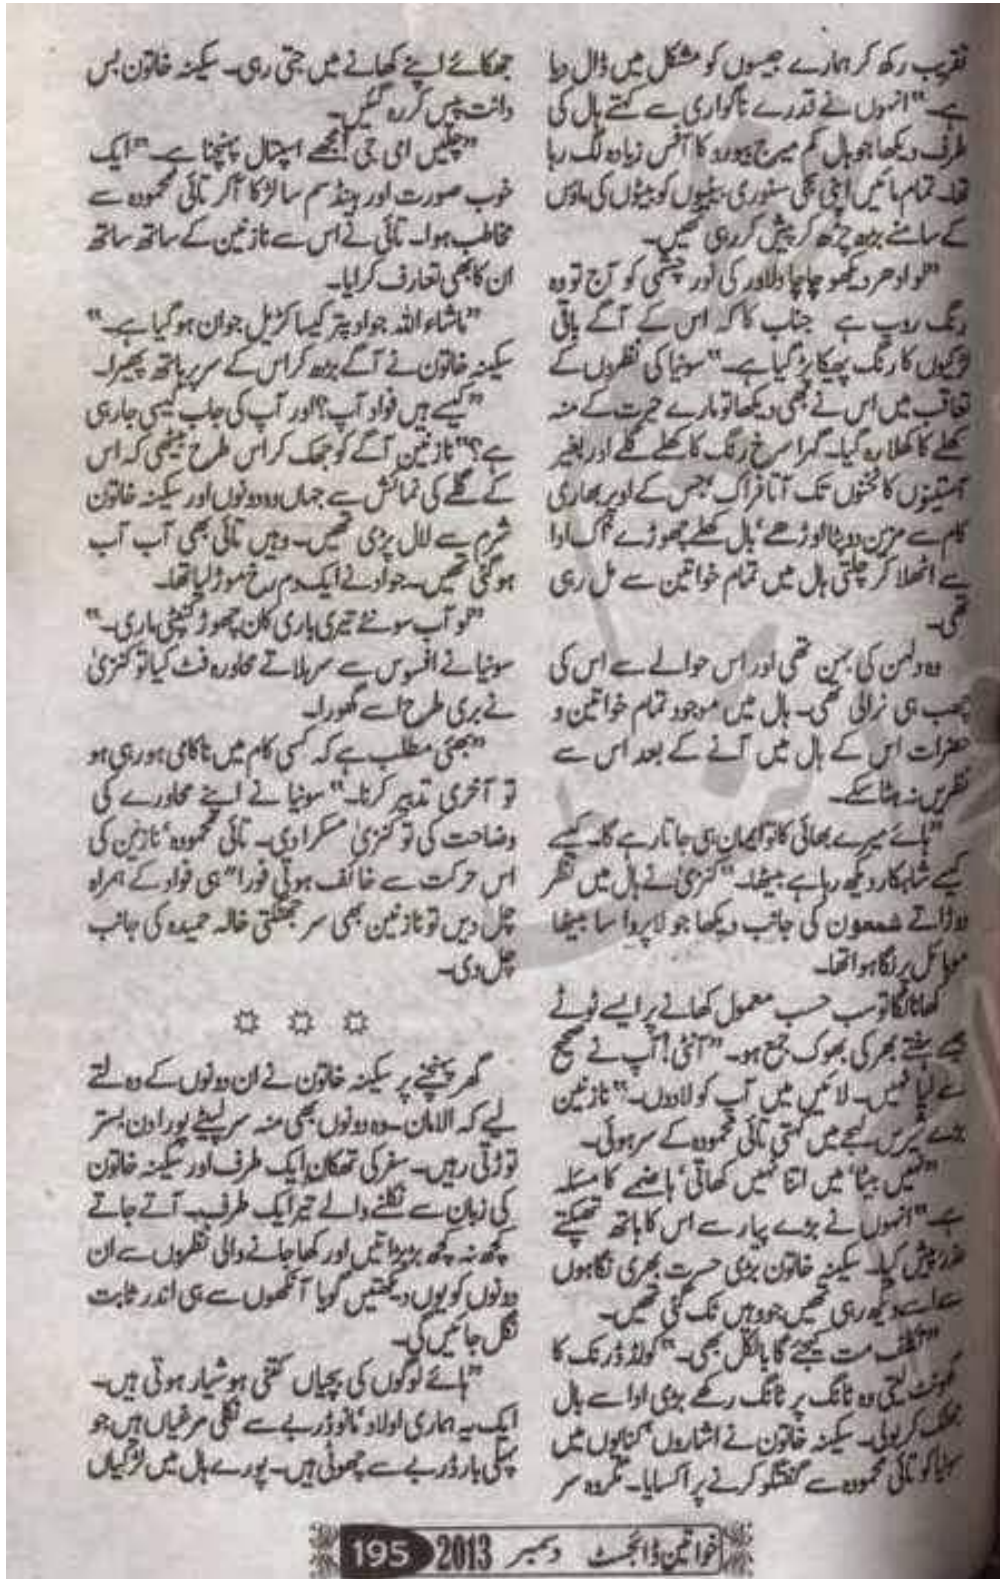 تقریب رکھ کر ہمارے جیسوں کو مشکل میں ڈال دیا
ہے۔" انہوں نے قدرے ناگواری سے کہتے ہال کی
طرف دیکھا جو ہال کم میرج بیورو کا آفس زیادہ لگ رہا
تھا۔ تمام مائیں اپنی سجی سنوری بیٹیوں کو بیٹوں کی ماؤں
کے سامنے بڑھ چڑھ کر پیش کر رہی تھیں۔
"لو ادھر دیکھو چاچا دلاور کی نور چشمی کو آج تو وہ
رنگ روپ ہے جناب کا کہ اس کے آگے باقی
لڑکیوں کا رنگ پھیکا پڑ گیا ہے۔" سونیا کی نظروں کے
تعاقب میں اس نے بھی دیکھا تو مارے حیرت کے منہ
کھلے کا کھلا رہ گیا۔ گہرا سرخ رنگ کا کھلے گلے اور بغیر
آستینوں کا ٹخنوں تک آتا فراک' جس کے اوپر بھاری
کام سے مزین دوپٹا اوڑھے' بال کھلے چھوڑے اک ادا
سے اٹھلا کر چلتی ہال میں تمام خواتین سے مل رہی
تھی۔
وہ دلہن کی بہن تھی اور اس حوالے سے اس کی
چھب ہی نرالی تھی۔ ہال میں موجود تمام خواتین و
حضرات اس کے ہال میں آنے کے بعد اس سے
نظریں نہ ہٹا سکے۔
"ہائے میرے بھائی کا تو ایمان ہی جاتا رہے گا۔ کیسے
کیسے شاہکار دیکھ رہا ہے بیٹھا۔" کنزیٰ نے ہال میں نظر
دوڑاتے شمعون کی جانب دیکھا جو لاپروا سا بیٹھا
موبائل پر لگا ہوا تھا۔
کھانا لگا تو سب حسب معمول کھانے پر ایسے ٹوٹے
جیسے ہفتے بھر کی بھوک جمع ہو۔ "آنٹی! آپ نے صحیح
سے لیا نہیں۔ لائیں میں آپ کو لا دوں۔" نازنین
بڑے شیریں لہجے میں کہتی تائی محمودہ کے سر ہوئی۔
"نہیں بیٹا' میں اتنا نہیں کھاتی' ہاضمے کا مسئلہ
ہے۔" انہوں نے بڑے پیار سے اس کا ہاتھ تھپکتے
عذر پیش کیا۔ سکینہ خاتون بڑی حسرت بھری نگاہوں
سے اسے دیکھ رہی تھیں جو وہیں ٹک گئی تھیں۔
"تکلف مت کیجئے گا بالکل بھی۔" کولڈ ڈرنک کا
گھونٹ لیتی وہ ٹانگ پر ٹانگ رکھے بڑی ادا سے بال
جھٹک کر بولی۔ سکینہ خاتون نے اشاروں' کنایوں میں
سونیا کو تائی محمودہ سے گفتگو کرنے پر اکسایا۔ مگر وہ سر
جھکائے اپنے کھانے میں جتی رہی۔ سکینہ خاتون بس
دانت پیس کر رہ گئیں۔
"چلیں امی جی! مجھے اسپتال پہنچنا ہے۔" ایک
خوب صورت اور ہینڈسم سا لڑکا آ کر تائی محمودہ سے
مخاطب ہوا۔ تائی نے اس سے نازنین کے ساتھ ساتھ
ان کا بھی تعارف کرایا۔
"ماشاء اللہ جواد پتر کیسا کڑیل جوان ہو گیا ہے۔"
سکینہ خاتون نے آگے بڑھ کر اس کے سر پر ہاتھ پھیرا۔
"کیسے ہیں فواد آپ؟ اور آپ کی جاب کیسی جا رہی
ہے؟" نازنین آگے کو جھک کر اس طرح بیٹھی کہ اس
کے گلے کی نمائش سے جہاں وہ دونوں اور سکینہ خاتون
شرم سے لال پڑی تھیں۔ وہیں تائی بھی آب آب
ہو گئی تھیں۔ جواد نے ایک دم رخ موڑ لیا تھا۔
"لو آب سونئے تیری باری کان چھوڑ کنپٹی ماری۔"
سونیا نے افسوس سے سر ہلاتے محاورہ فٹ کیا تو کنزیٰ
نے بری طرح اسے گھورا۔
"بھئی مطلب ہے کہ کسی کام میں ناکامی ہو رہی ہو
تو آخری تدبیر کرنا۔" سونیا نے اپنے محاورے کی
وضاحت کی تو کنزیٰ مسکرا دی۔ تائی محمودہ' نازنین کی
اس حرکت سے خائف ہوتی فورا" ہی فواد کے ہمراہ
چل دیں تو نازنین بھی سر جھٹکتی خالہ حمیدہ کی جانب
چل دی۔
گھر پہنچنے پر سکینہ خاتون نے ان دونوں کے وہ لتے
لیے کہ الامان۔ وہ دونوں بھی منہ سر لپیٹے پورا دن بستر
توڑتی رہیں۔ سفر کی تھکان ایک طرف اور سکینہ خاتون
کی زبان سے نکلنے والے تیر ایک طرف۔ آتے جاتے
کچھ نہ کچھ بڑبڑاتیں اور کھا جانے والی نظروں سے ان
دونوں کو یوں دیکھتیں گویا آنکھوں سے ہی اندر ثابت
نگل جائیں گی۔
"ہائے لوگوں کی بچیاں کتنی ہوشیار ہوتی ہیں۔
ایک یہ ہماری اولاد' مانو ڈربے سے نکلی مرغیاں ہیں جو
پہلی بار ڈربے سے چھوٹی ہیں۔ پورے ہال میں لڑکیاں
خواتین ڈائجسٹ دسمبر 2013 195